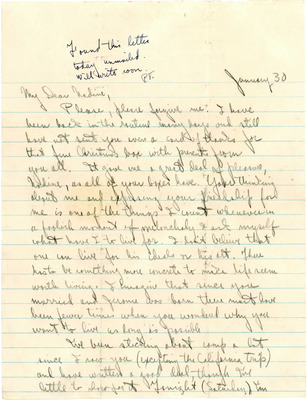 Found this letter
today unmailed.
Will write soon
January 30
My Dear Nadine,
Please, please forgive me! I have
been back in the routine many days and still
have not sent you even a card of thanks for
that fine Christmas box with presents from
you all. It gave me a great deal of pleasure,
Nadine, as all of your boxes have. Your thinking
about me and expressing your friendship for
me is one of the things I count whenever in
a foolish moment of melancholy I ask myself
what have I to live for. I don't believe that
one can live for his ideals or his art. There
has to be something more concrete to make life seem
worth living. I imagine that since you
married and Jerome was born there must have
been fewer times when you wonder why you
want to live as long as possible
I've been sticking about camp a lot
since I saw you (excepting the California trip)
and have written a good deal though I've
little to show for it. Tonight (Saturday) I'm